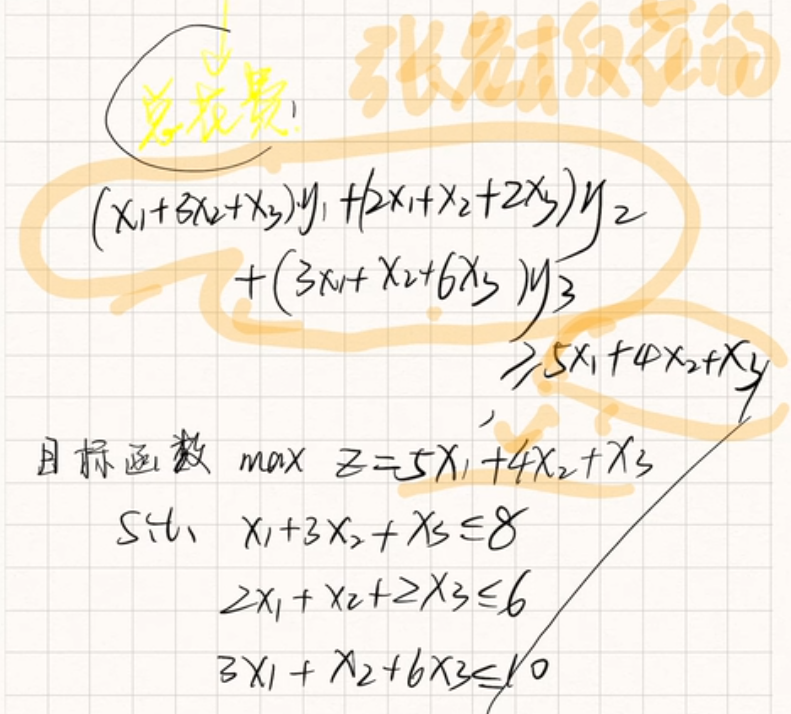 总花费
(x₁+3x₂+x₃)y₁+(2x₁+x₂+2x₃)y₂
+(3x₁+x₂+6x₃)y₃
≥5x₁+4x₂+x₃
目标函数 max z=5x₁+4x₂+x₃
s.t. x₁+3x₂+x₃≤8
2x₁+x₂+2x₃≤6
3x₁+x₂+6x₃≤10